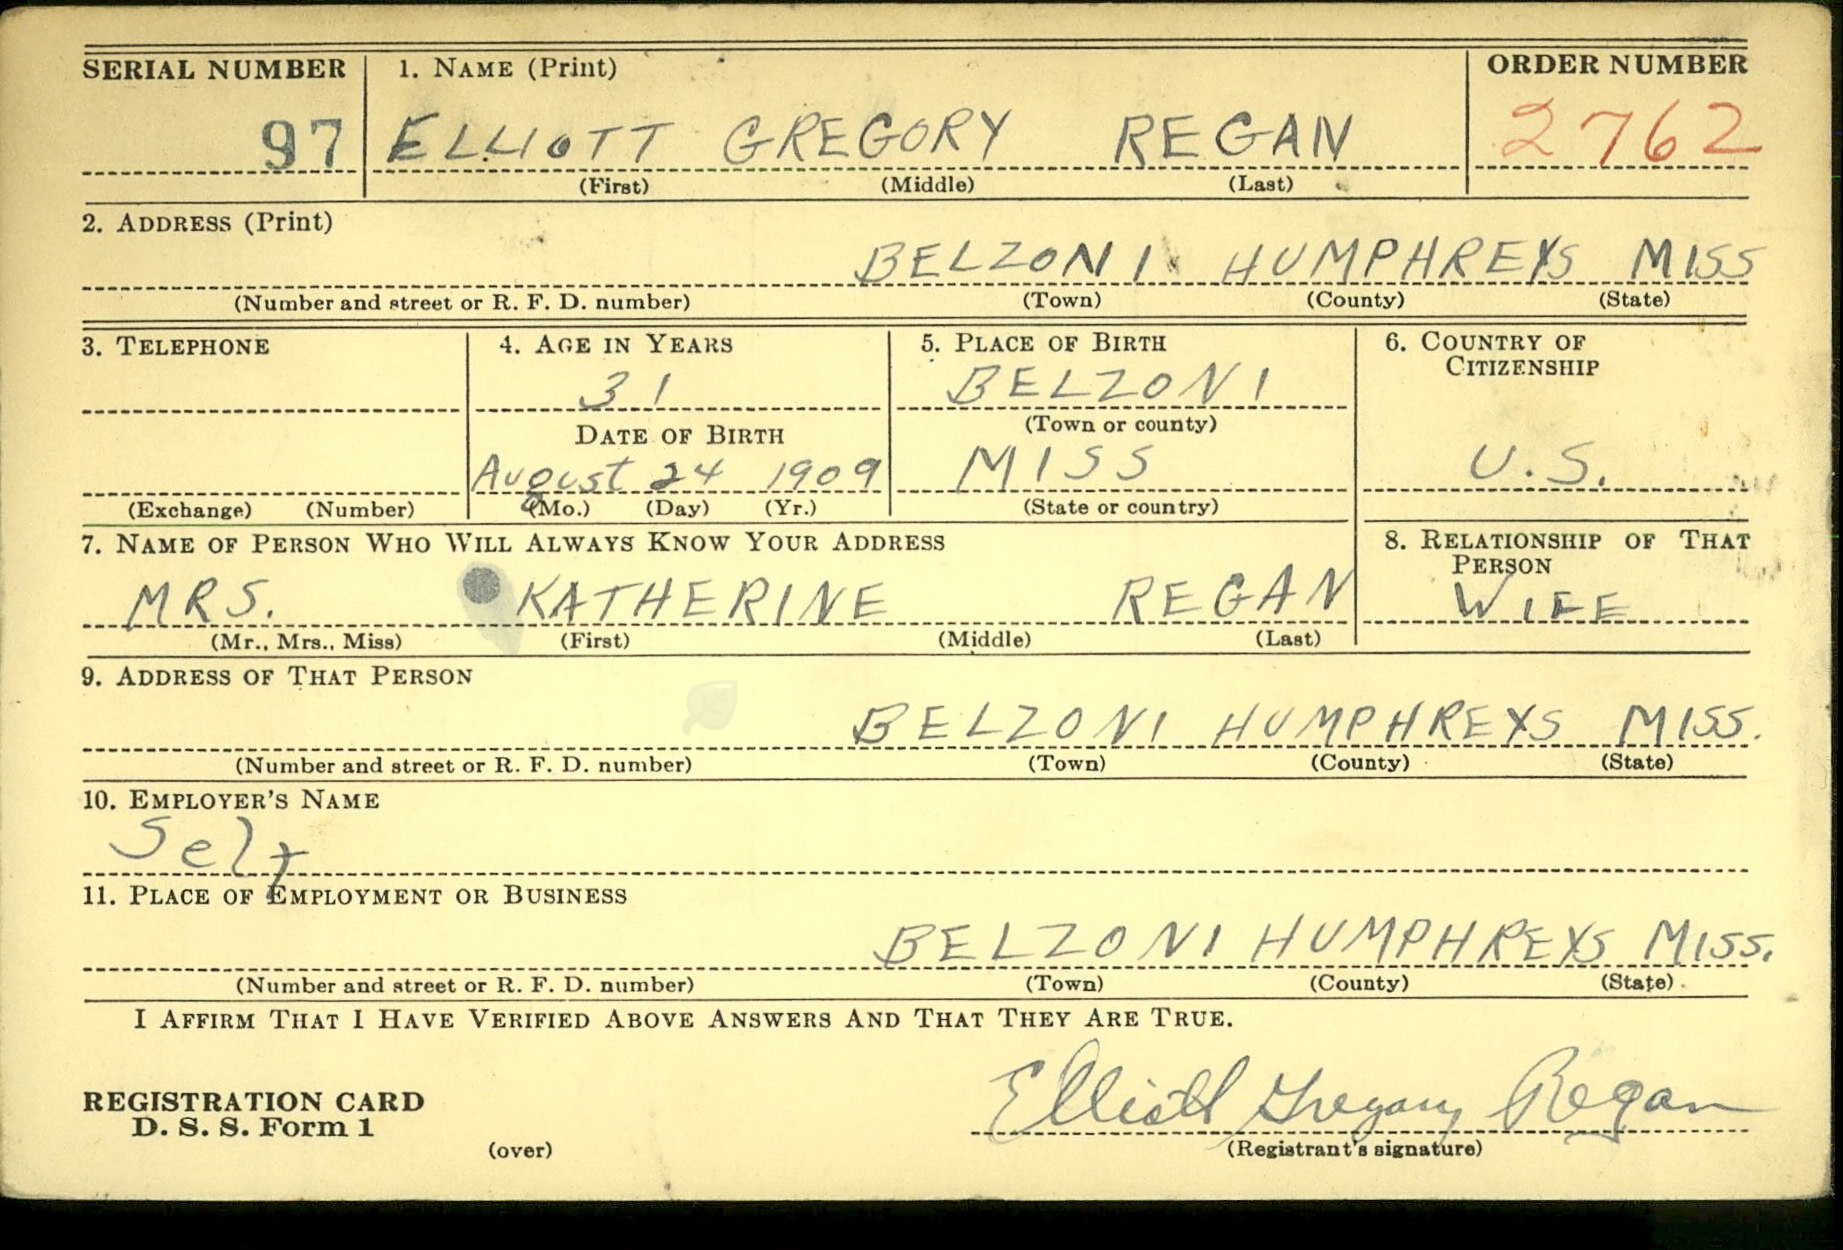 SERIAL NUMBER 1. NAME (Print) ORDER NUMBER
97 ELLIOTT GREGORY REGAN 2762
(First) (Middle) (Last)
2. ADDRESS (Print)
BELZONI HUMPHREYS MISS
(Number and street or R. F. D. number) (Town) (County) (State)
3. TELEPHONE 4. AGE IN YEARS 5. PLACE OF BIRTH 6. COUNTRY OF
CITIZENSHIP
31 BELZONI
DATE OF BIRTH (Town or county)
August 24 1909 MISS U.S.
(Exchange) (Number) (Mo.) (Day) (Yr.) (State or country)
7. NAME OF PERSON WHO WILL ALWAYS KNOW YOUR ADDRESS 8. RELATIONSHIP OF THAT
PERSON
MRS. KATHERINE REGAN WIFE
(Mr., Mrs., Miss) (First) (Middle) (Last)
9. ADDRESS OF THAT PERSON
BELZONI HUMPHREYS MISS.
(Number and street or R. F. D. number) (Town) (County) (State)
10. EMPLOYER'S NAME
Self
11. PLACE OF EMPLOYMENT OR BUSINESS
BELZONI HUMPHREYS MISS.
(Number and street or R. F. D. number) (Town) (County) (State)
I AFFIRM THAT I HAVE VERIFIED ABOVE ANSWERS AND THAT THEY ARE TRUE.
Elliott Gregory Regan
REGISTRATION CARD
D. S. S. Form 1
(over) (Registrant's signature)